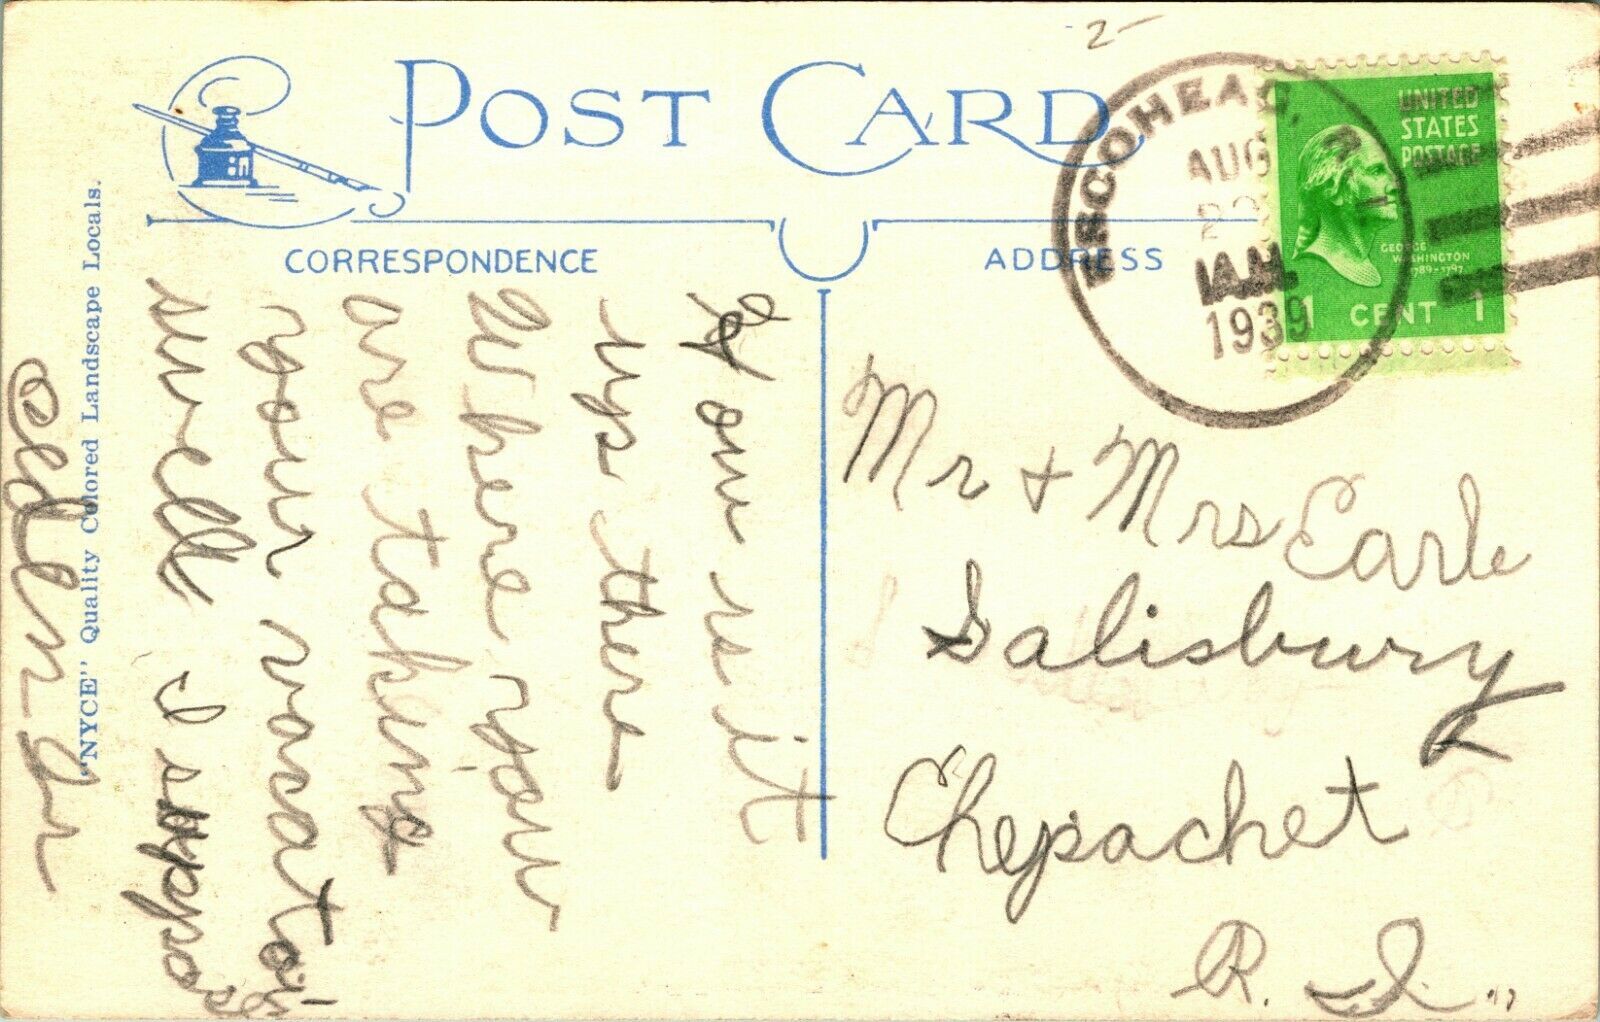 2-
POST CARD
CORRESPONDENCE
ADDRESS
ESCOHEAG, R. I.
AUG
1939
A.M.
UNITED
STATES
POSTAGE
GEORGE
WASHINGTON
1789-1797
1 CENT 1
How is it
up there
Where you
are taking
your vacation
swell I suppose
Mr + Mrs Earle
Salisbury
Chepachet
R. I.
"NYCE" Quality Colored Landscape Locals.